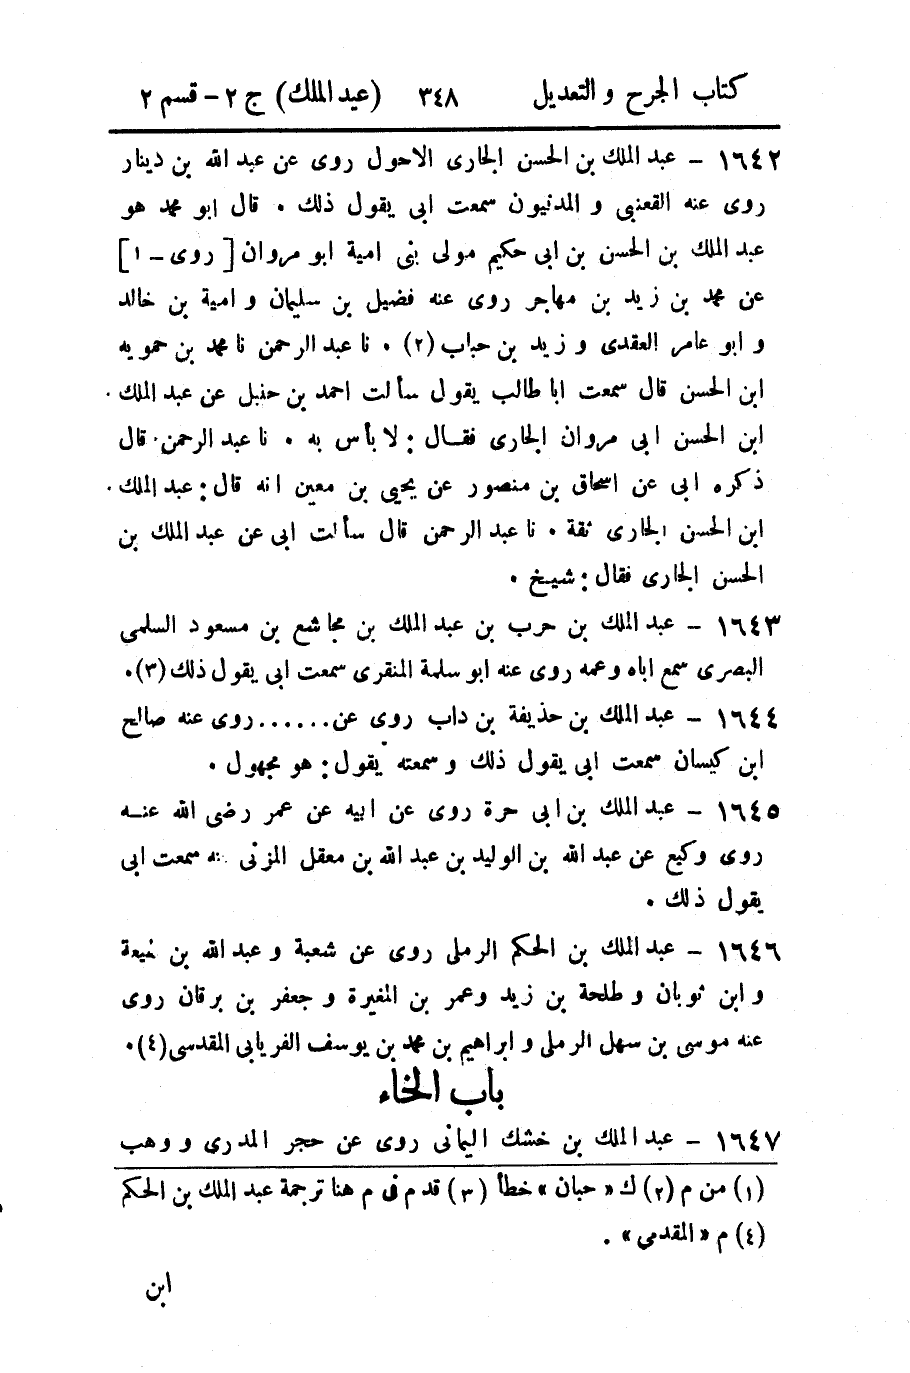 كتاب الجرح و التعديل ٣٤٨ (عبد الملك) ج ٢ - قسم ٢
١٦٤٢ - عبد الملك بن الحسن الجارى الاحول روى عن عبد الله بن دينار
روى عنه القعنبى و المدنيون سمعت ابى يقول ذلك . قال ابو محمد هو
عبد الملك بن الحسن بن ابى حكيم مولى بنى امية ابو مروان [ روى - ١ ]
عن محمد بن زيد بن مهاجر روى عنه فضيل بن سليمان و امية بن خالد
و ابو عامر العقدى و زيد بن حباب (٢) . نا عبد الرحمن نا محمد بن حمويه
ابن الحسن قال سمعت ابا طالب يقول سألت احمد بن حنبل عن عبد الملك
ابن الحسن ابى مروان الجارى فقال : لا بأس به . نا عبد الرحمن قال
ذكره ابى عن اسحاق بن منصور عن يحيى بن معين انه قال : عبد الملك
ابن الحسن الجارى ثقة . نا عبد الرحمن قال سألت ابى عن عبد الملك بن
الحسن الجارى فقال : شيخ .
١٦٤٣ - عبد الملك بن حرب بن عبد الملك بن مجاشع بن مسعود السلمى
البصرى سمع اباه وعمه روى عنه ابو سلمة المنقرى سمعت ابى يقول ذلك (٣).
١٦٤٤ - عبد الملك بن حذيفة بن داب روى عن...... روى عنه صالح
ابن كيسان سمعت ابى يقول ذلك و سمعته يقول : هو مجهول .
١٦٤٥ - عبد الملك بن ابى حرة روى عن ابيه عن عمر رضى الله عنه
روى وكيع عن عبد الله بن الوليد بن عبد الله بن معقل المزنى سمعت ابى
يقول ذلك .
١٦٤٦ - عبد الملك بن الحكم الرملى روى عن شعبة و عبد الله بن
و ابن ثوبان و طلحة بن زيد وعمر بن المغيرة و جعفر بن برقان روى
عنه موسى بن سهل الرملى و ابراهيم بن محمد بن يوسف الفريابى المقدسى (٤).
باب الخاء
١٦٤٧ - عبد الملك بن خشك اليمانى روى عن حجر المدرى و وهب
(١) من م (٢) ك « حبان » خطأ (٣) قدم فى م هنا ترجمة عبد الملك بن الحكم
(٤) م « المقدمى » .
ابن